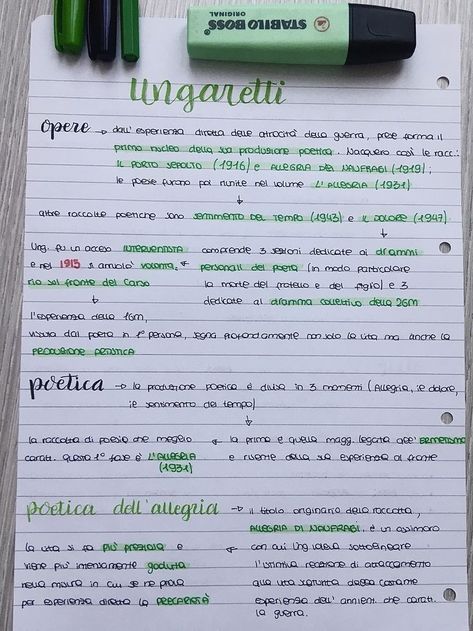 STABILO BOSS
ORIGINAL
Ungaretti
opere → dall'esperienza diretta delle atrocità della guerra, prese forma il
primo nucleo della sua produzione poetica. Nacquero così le racc.:
IL PORTO SEPOLTO (1916) e ALLEGRIA DEI NAUFRAGI (1919);
le poesie furono poi riunite nel volume L'ALLEGRIA (1931)
↓
altre raccolte poetiche sono SENTIMENTO DEL TEMPO (1943) e IL DOLORE (1947)
Ung. fu un acceso INTERVENTISTA
e nel 1915 si arruolò volonta.
rio sul fronte del Carso
↓
l'esperienza della 1GM,
vissuta dal poeta in 1° persona, segna profondamente non solo la vita ma anche la
PRODUZIONE ARTISTICA
↓
comprende 3 sezioni dedicate ai drammi
personali del poeta (in modo particolare
la morte del fratello e del figlio) e 3
dedicate al dramma collettivo della 2GM
poetica → la produzione poetica è divisa in 3 momenti (Allegria, il dolore,
il sentimento del tempo)
↓
la prima è quella magg. legata all'ERMETISMO
e risente della sua esperienza al fronte
←
la raccolta di poesie che meglio
caratt. questa 1° fase è L'ALLEGRIA
(1931)
poetica dell'allegria → il titolo originario della raccolta,
ALLEGRIA DI NAUFRAGI, è un ossimoro
con cui Ung. voleva sottolineare
l'istintiva reazione di attaccamento
alla vita scaturita dalla costante
esperienza dell'annient. che caratt.
la guerra.
←
la vita si fa più preziosa e
viene più intensamente goduta
nella misura in cui se ne prova
per esperienza diretta la PRECARIETÀ